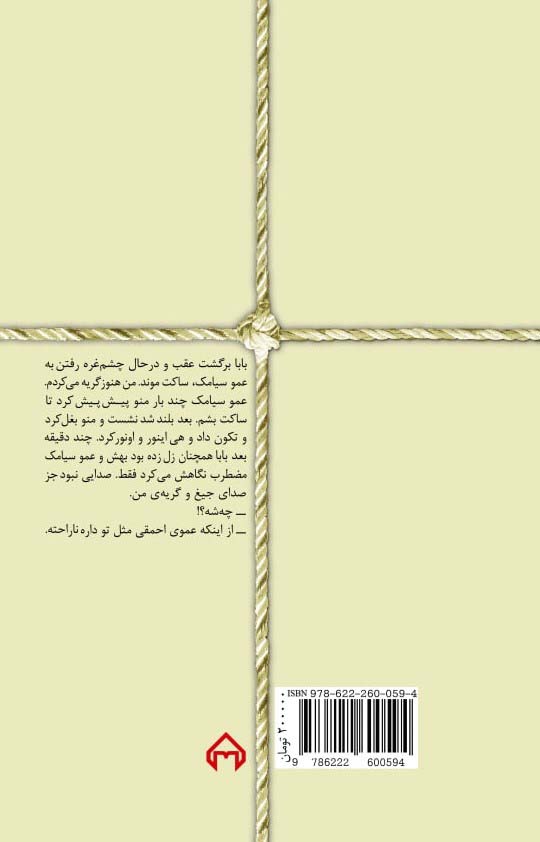 بابا برگشت عقب و درحال چشم‌غره رفتن به
عمو سیامک، ساکت موند. من هنوز گریه می‌کردم.
عمو سیامک چند بار منو پیـش پـیش کرد تا
ساکت بشم. بعد بلند شد نشست و منو بغل کرد
و تکون داد و هی اینور و اونور کرد. چند دقیقه
بعد بابا همچنان زل زده بود بهش و عمو سیامک
مضطرب نگاهش می‌کرد فقط. صدایی نبود جز
صدای جیغ و گریه‌ی من.
ـــ چه‌شه؟!
ـــ از اینکه عموی احمقی مثل تو داره ناراحته.
ISBN 978-622-260-059-4
۲۰۰۰۰ تومان
9 786222 600594